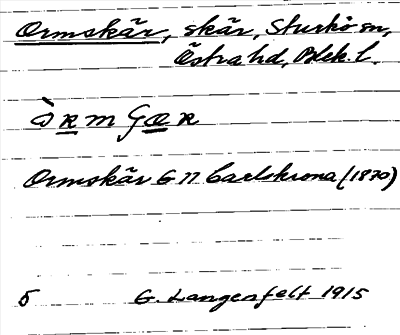 Ormskär, skär, Sturkö sn,
Östra hd, Blek. l.
Ormskär G 77 Carlskrona (1870)
5 G. Langenfelt 1915